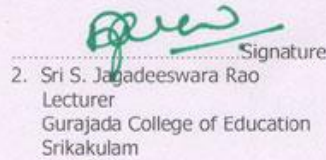 ....................................Signature
2. Sri S. Jagadeeswara Rao
Lecturer
Gurajada College of Education
Srikakulam